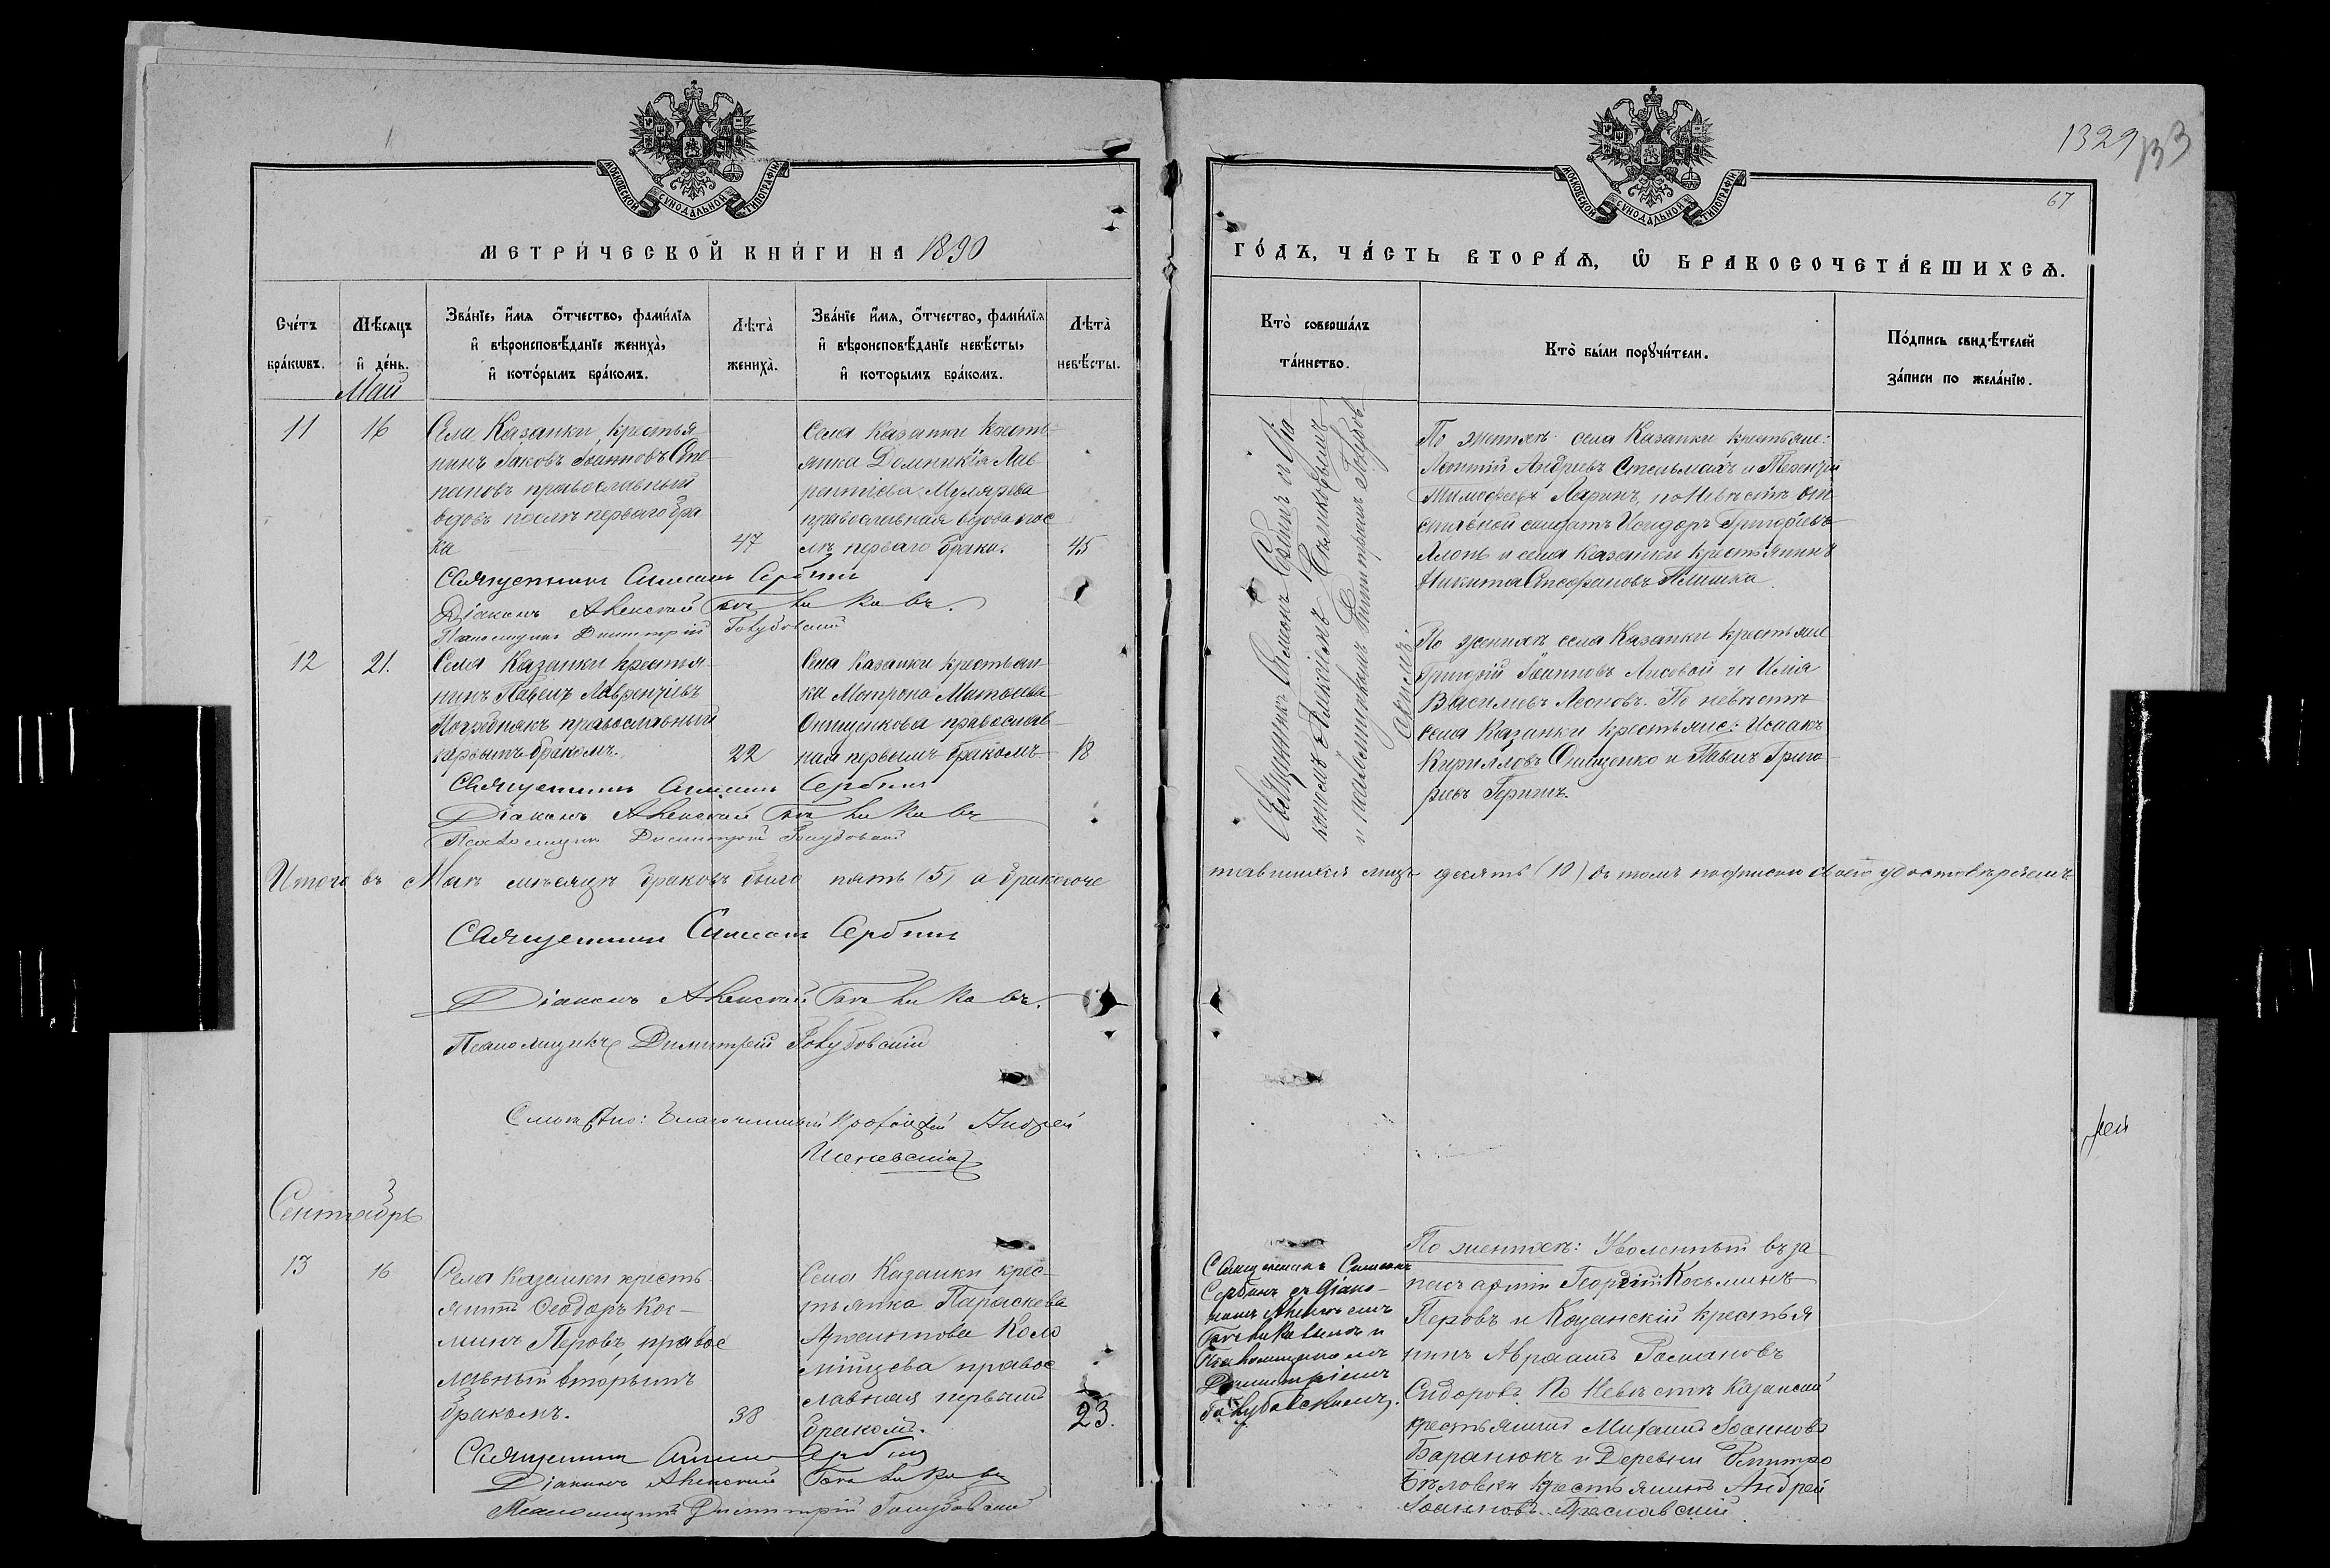 МОСКОВСКОЙ СУНОДАЛЬНОЙ ТИПОГРАФІИ
МЕТРИ́ЧЕСКОЙ КНИ́ГИ НА 1890
Сче́тъ бра́кωвъ.
Мѣсяцъ и҆ де́нь.
Зва́нїе, и҆́мя ѻ҆́тчество, фами́лїя
и҆ вѣроисповѣ́данїе жениха̀,
и҆ кото́рымъ бра́комъ.
Лѣта̀ жениха̀.
Зва́нїе и҆́мя, ѻ҆́тчество, фами́лїя
и҆ вѣроисповѣ́данїе невѣ́сты,
и҆ которымъ бра́комъ.
Лѣта̀ невѣ́сты.
Май
11
16
Села Казанки крестья-
нинъ Іаковъ Іоанновъ Сте
пановъ православный
вдовъ послѣ перваго бра
ка
47
Села Казанки кресть-
янка Домникія Лав
рентіева Мулярева
православная вдова пос
лѣ перваго брака.
45
Священникъ Симеонъ Сербинъ
Діаконъ Алексѣй
Псаломщикъ Димитрій Голубовскій
12
21.
Села Казанки крестья-
нинъ Павелъ Лаврентіевъ
православный
первымъ бракомъ.
22
Села Казанки крестьян-
ка Матрона Матѳеева
Онищенкова православ-
ная первымъ бракомъ
18
Священникъ Симеонъ Сербинъ
Діаконъ Алексѣй
Псаломщикъ Димитрій Голубовскій
Итого въ Маѣ мѣсяцѣ браковъ было пять (5) а бракосоче
Священникъ Симеонъ Сербинъ
Діаконъ Алексѣй
Псаломщикъ Димитрій Голубовскій
Смотрѣно: Благочинный Протоіерей Андрей
Сентябрь
13
16
Села Казанки кресть-
янинъ Ѳеодоръ Кос-
минъ Перовъ, правос
лавный вторымъ
бракомъ.
38
Села Казанки крес-
тьянка Параскева
Коло
мійцева правос
лавная первымъ
бракомъ.
23.
Священникъ Симеонъ Сербинъ
Діаконъ Алексѣй
Псаломщикъ Димитрій Голубовскій
1329
133
67
МОСКОВСКОЙ СУНОДАЛЬНОЙ ТИПОГРАФІИ
ГО́ДЪ, ЧА́СТЬ ВТОРА́Ѧ, Ѡ҆ БРАКОСОЧЕТА́ВШИХСѦ.
Кто̀ соверша́лъ
та́инство.
Кто̀ бы́ли порꙋчи́тели.
По́дпись свидѣ́телей
за́писи по жела́нїю.
Священникъ Симеонъ Сербинъ съ Діа
кономъ Алексіемъ
и псаломщикомъ Димитріемъ Голубов
скимъ.
По женихѣ: села Казанки крестьяне:
Леонтій Андреевъ Стельмахъ и Терентій
Тимофеевъ Ларинъ, по невѣстѣ от
ставной солдатъ Исидоръ Григорьевъ
и села Казанки крестьянинъ
Никита Стефановъ
По женихѣ села Казанки крестьяне
Григорій Іоанновъ Лисовой и Илія
Васильевъ Леоновъ. По невѣстѣ
села Казанки крестьяне: Исаакъ
Кирилловъ Онищенко и Павелъ Григо-
рьевъ
тавшихся лицъ десять (10) въ томъ подписью своею удостовѣряемъ
рей
Священникъ Симеонъ
Сербинъ съ Діако-
номъ Алексіемъ
и
Псаломщикомъ
Димитріемъ
Голубовскимъ.
По женихѣ: Уволенный въ за-
пасъ арміи Георгій Косьминъ
Перовъ и Казанскій крестья
нинъ Авраамъ Романовъ
Сидоровъ. По невѣстѣ Казанскій
крестьянинъ Михаилъ Іоанновъ
Баранюкъ и Деревни
крестьянинъ Андрей
Іоанновъ